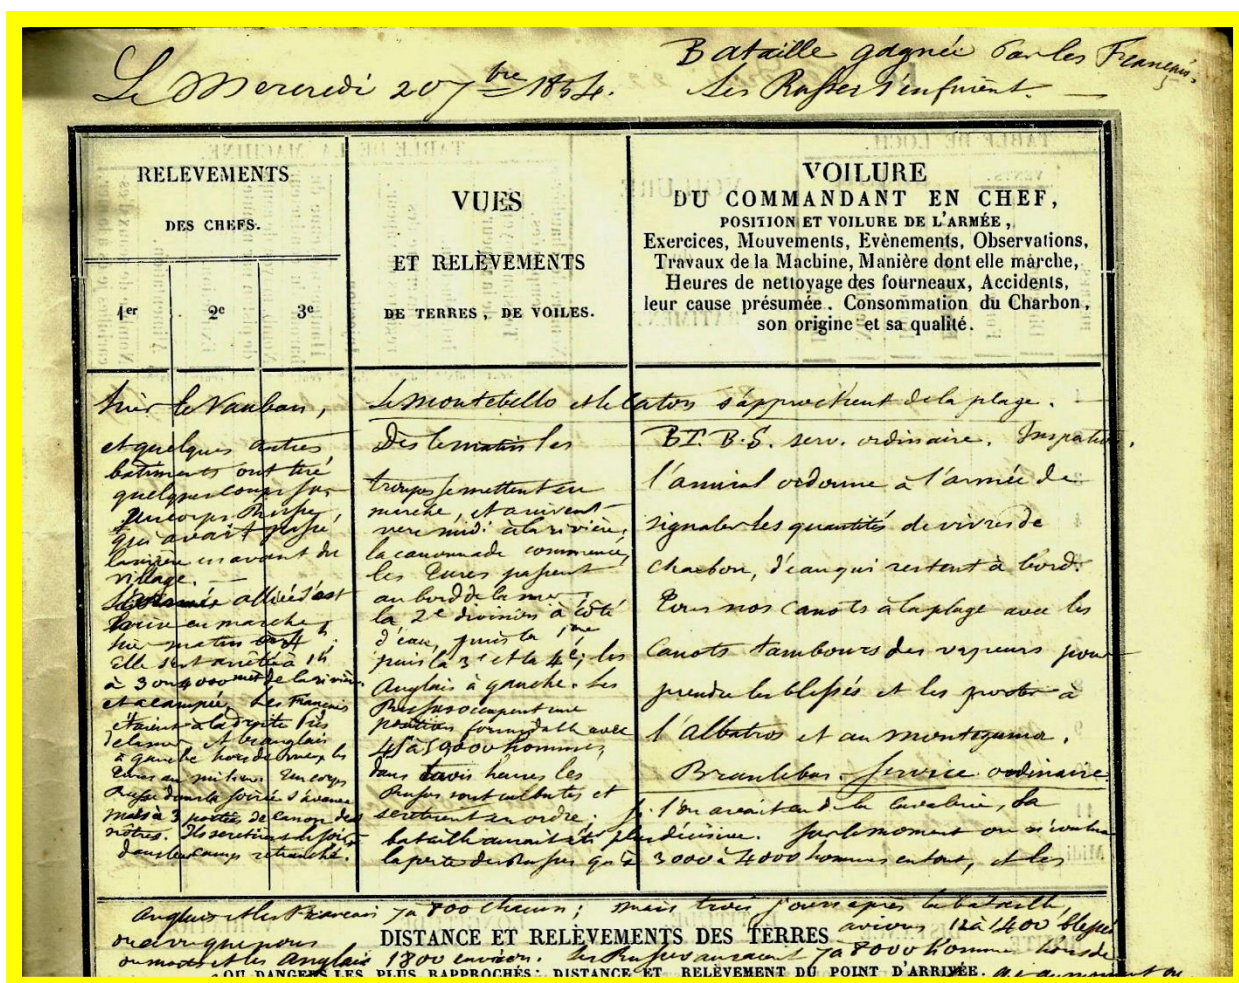 Le Mercredi 20 7bre 1854.
Bataille gagnée par les Français.
Les Russes s'enfuient.
RELEVEMENTS
DES CHEFS.
1er 2e 3e
VUES
ET RELÈVEMENTS
DE TERRES, DE VOILES.
VOILURE
DU COMMANDANT EN CHEF,
POSITION ET VOILURE DE L'ARMÉE,
Exercices, Mouvements, Evènements, Observations,
Travaux de la Machine, Manière dont elle marche,
Heures de nettoyage des fourneaux, Accidents,
leur cause présumée. Consommation du Charbon,
son origine et sa qualité.
hier le Vauban,
et quelques autres
bâtiments ont tiré
quelques coups sur
un corps Russe,
qui avait passé
la rivière en avant du
village.
alliée s'est
en marche
hier matin
Elle s'est arrêtée à 1h
à 3 ou 4000 met de la rivière
et a campée. Les Français
étaient à la droite près
de la mer et les anglais
à gauche
Turcs au milieu. Un corps
Russe dans la soirée s'avance
mais à 3 portées de canon des
nôtres. Ils se retirent le soir
dans leur camp retranché.
Le Montebello et le Caton s'approchent de la plage.
Dès le matin les
troupes se mettent en
marche, et arrivent
vers midi à la rivière,
la canonnade commence,
les Turcs passent
au bord de la mer,
la 2e division à côté
d'eau, puis la 1ère
puis la 3e et la 4e; les
Anglais à gauche. Les
Russes occupent une
position formidable avec
45 à 50000 hommes,
dans trois heures les
Russes sont culbutés et
se retirent en ordre. Si l'on avait eu de la cavalerie, la
bataille aurait été plus décisive. Sur le moment on
la perte des Russes qu'à 3000 à 4000 hommes en tout, et les
B.T. B.S. serv. ordinaire. Inspection.
l'amiral ordonne à l'armée de
signaler les quantités de vivres de
charbon, d'eau qui restent à bord.
Tous nos canots à la plage avec les
Canots tambours des vapeurs pour
prendre les blessés et les porter à
l'Albatros et au Montezuma.
Branlebas. Service ordinaire
Anglais et les Français 7 à 800 chacun; mais trois jours après la bataille,
on a vu que nous avions 12 à 1400 blessés
DISTANCE ET RELÈVEMENTS DES TERRES
ou morts et les Anglais 1800 environ. Les Russes auraient 7 à 8000 hommes hors de
OU DANGERS LES PLUS RAPPROCHÉS: DISTANCE ET RELÈVEMENT DU POINT D'ARRIVÉE.